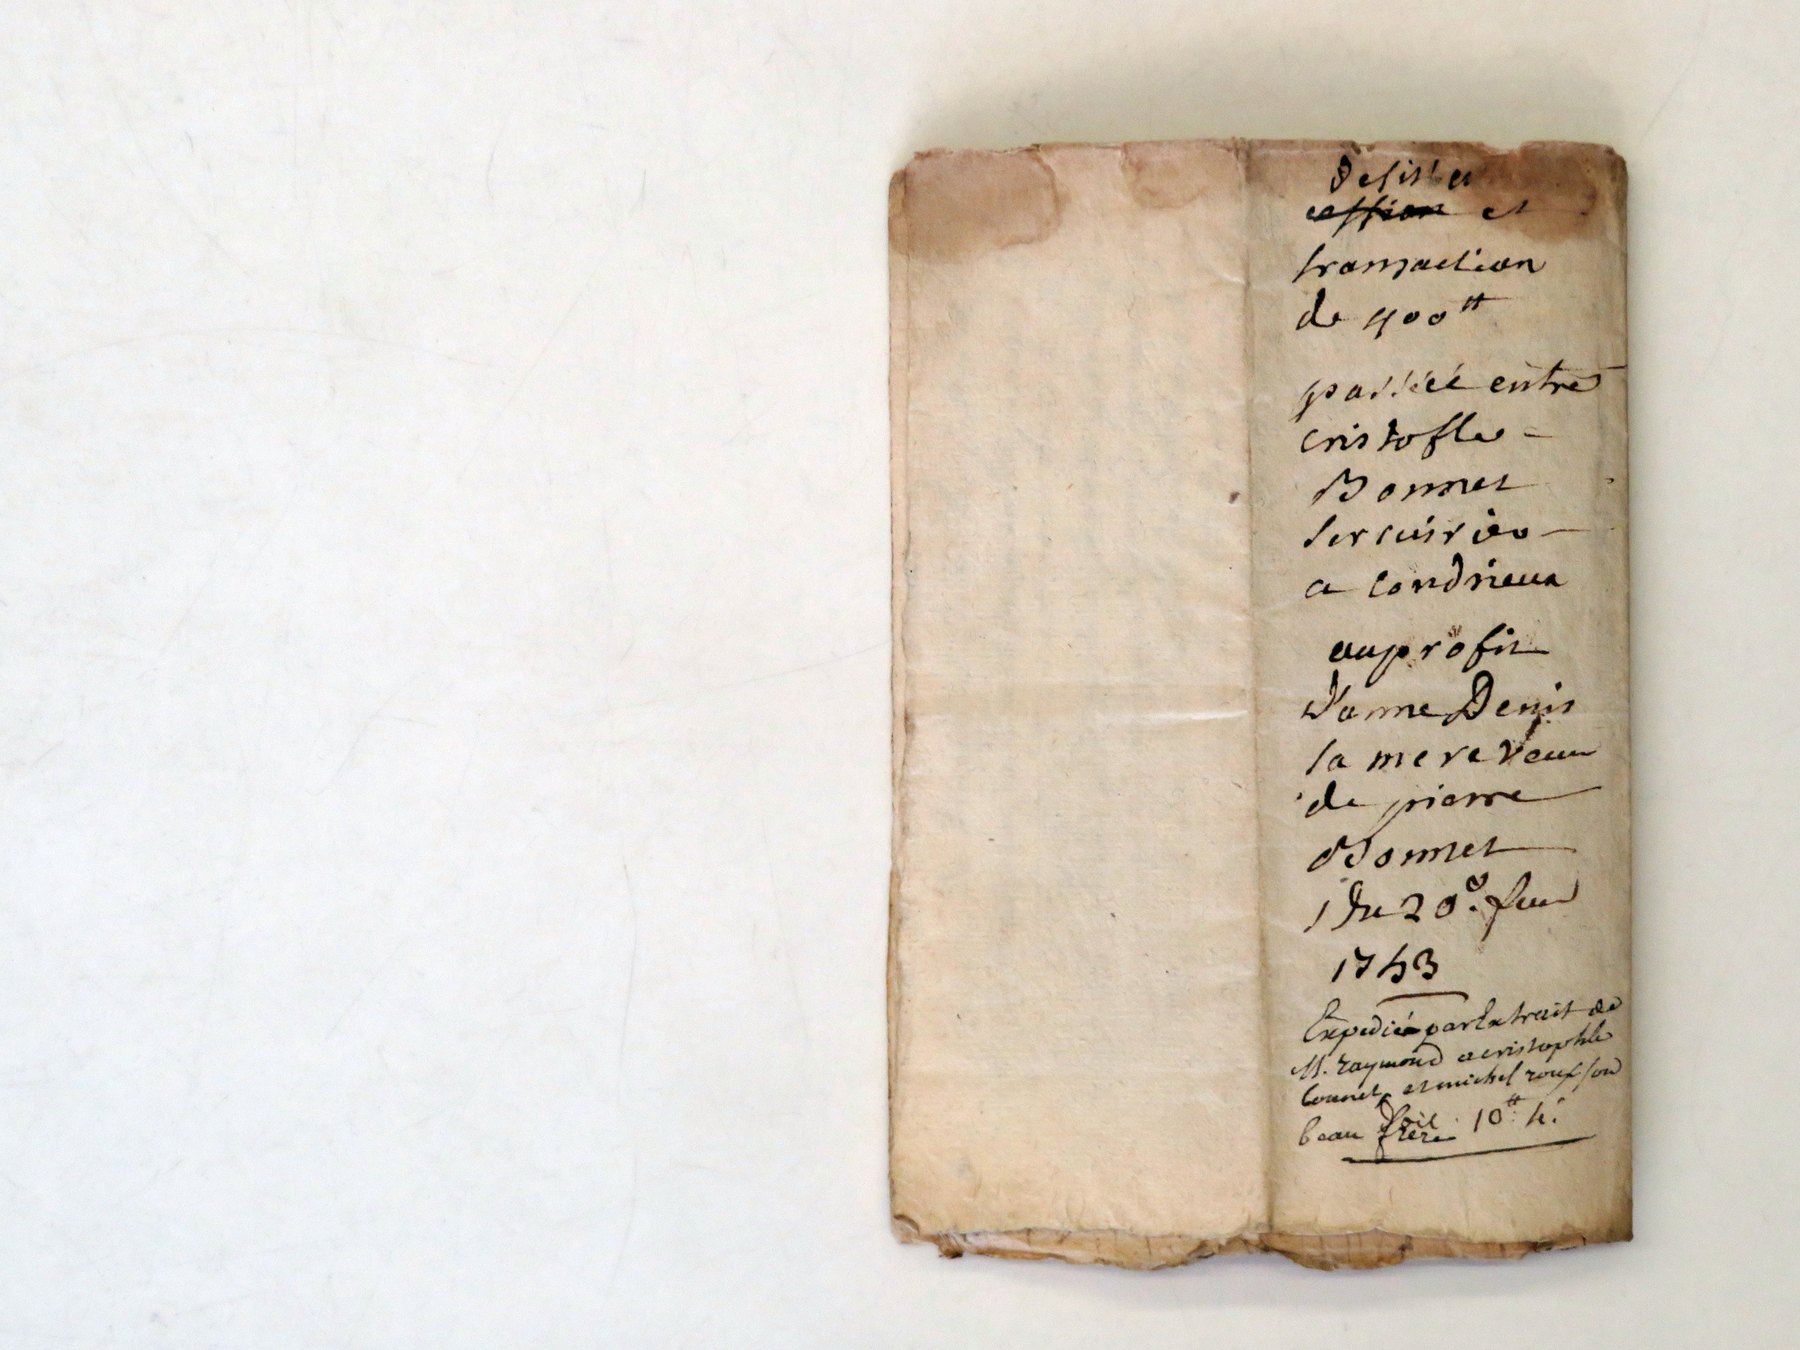 cession et
transaction
de 400ᵗᵗ
passéé entre
cristofle -
Bonnet
sercuirier -
a condrieux
au profit
d'anne Denis
la mere veuve
de pierre
Bonnet
Du 20ᵉ. feu
1743
Expediée par Extrait de
M. raymond a cristophle
bounet, et michel roux son
beau frère 10ᵗᵗ